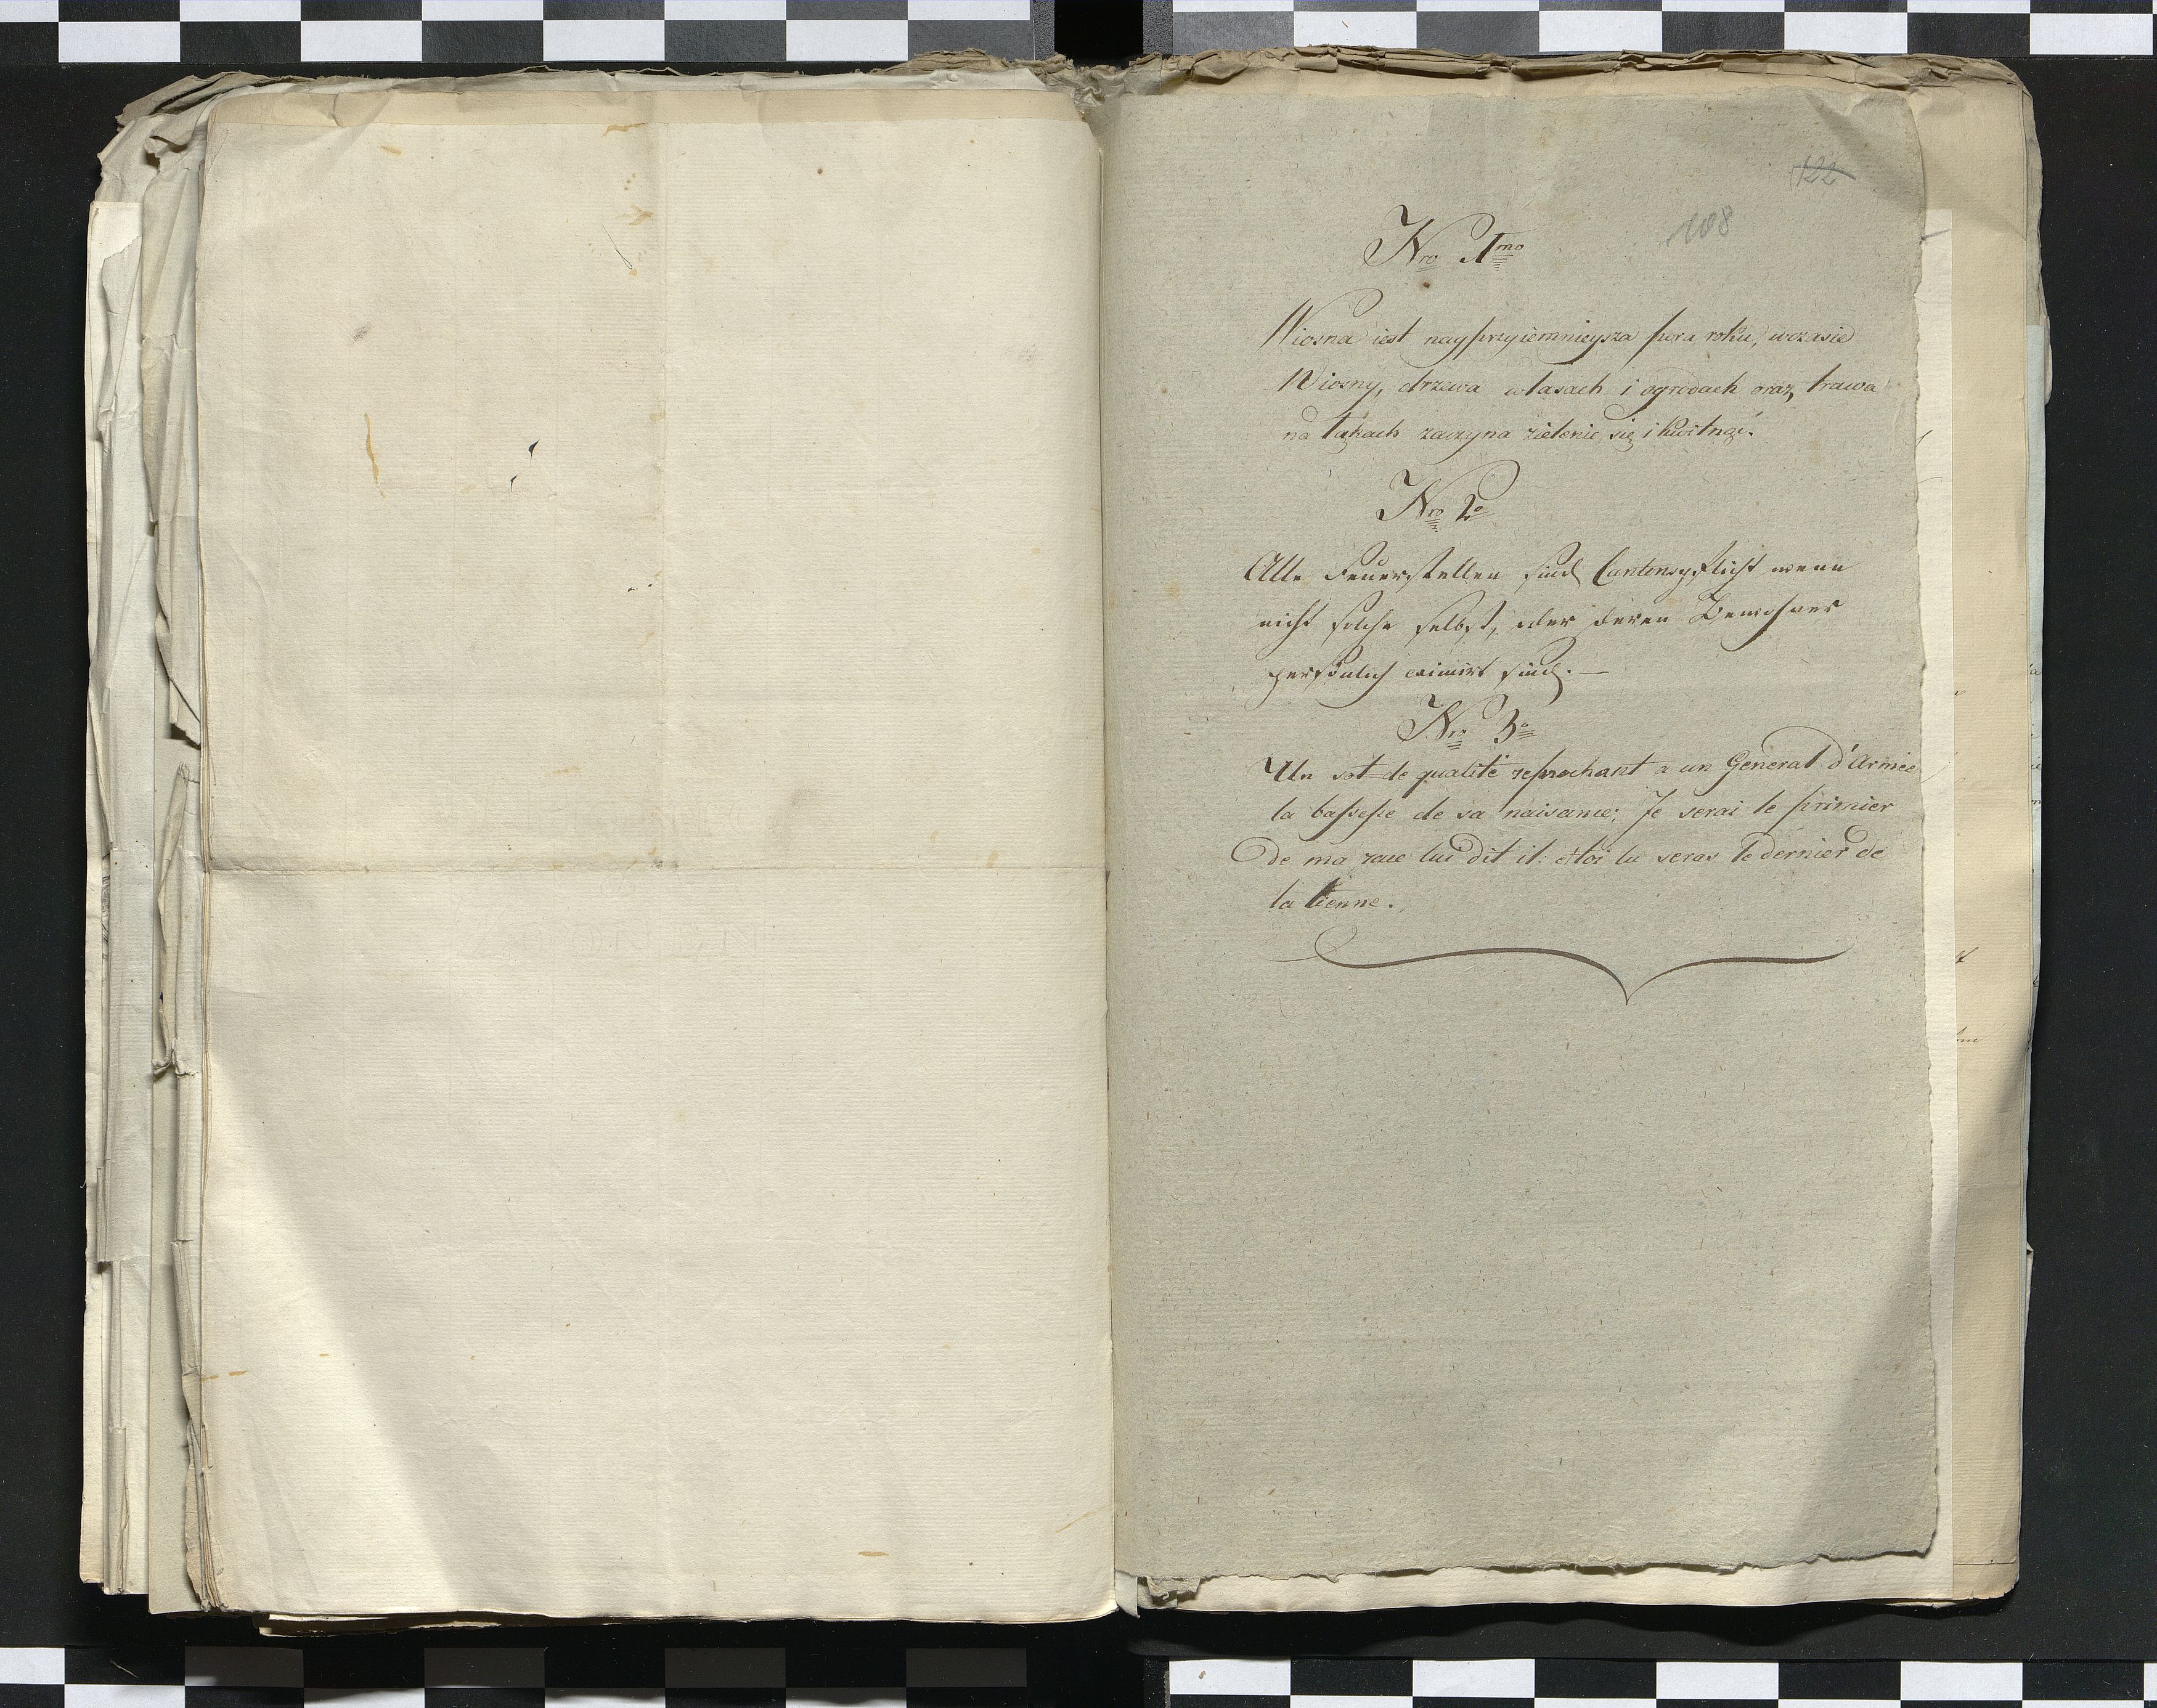 122
108
Nro 1mo
Wiosna iest nayprzyiemnieysza pora roku, wczasie
Wiosny, drzewa wlasach i ogrodach oraz trawa
na łąkach zaczyna zielenic się i kwitnąć.
Nro 2o
Alle Feuerstellen sind Cantonspflicht wenn
nicht solche selbst, oder deren Bewohner
persönlich eximirt sind. —
Nro 3o
Un sot de qualité reprochant a un General d'Armée
la baſseſse de sa naisance; Je serai le primier
De ma race lui dit il: et toi tu seras le dernier de
la tienne.